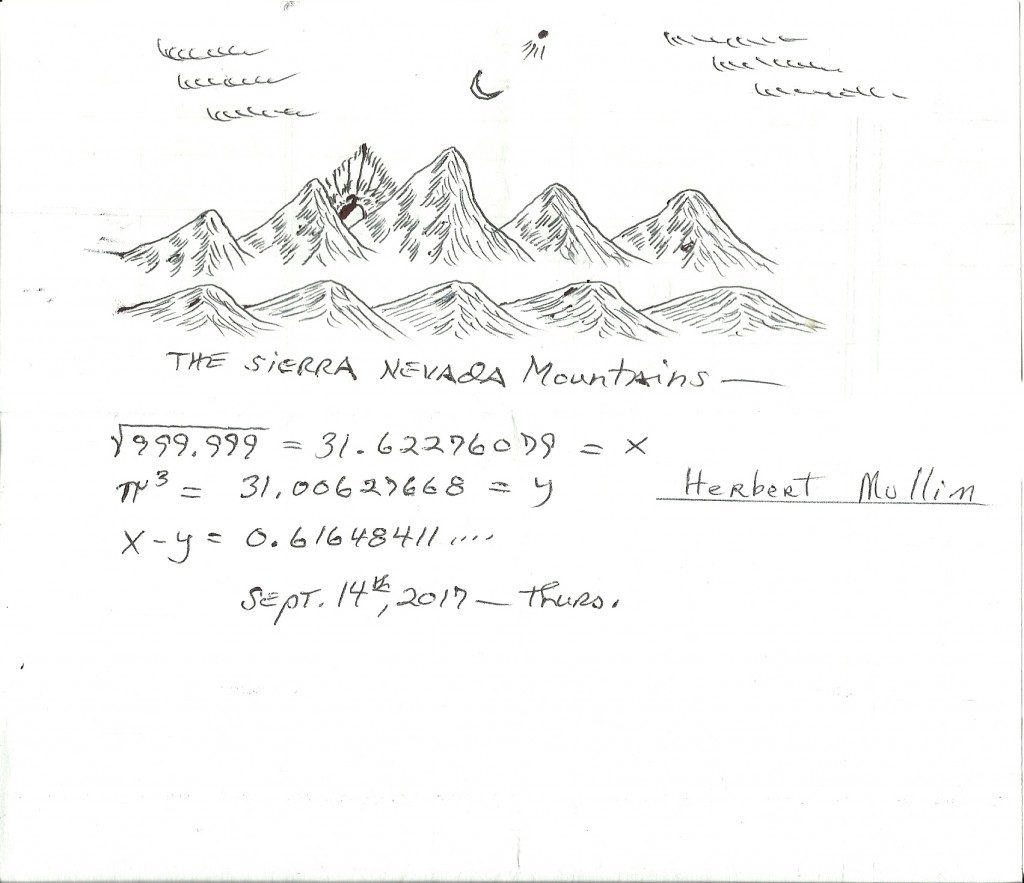 THE SiERRA NEVADA Mountains —
√999.999 = 31.62276079 = x
π³ = 31.00627668 = y
Herbert Mullin
x - y = 0.61648411 ....
Sept. 14th, 2017 — Thurs.